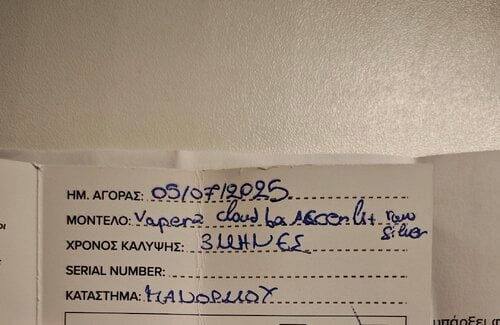 ΗΜ. ΑΓΟΡΑΣ: 05/07/2025
ΜΟΝΤΕΛΟ: Vaperz cloud
silver
ΧΡΟΝΟΣ ΚΑΛΥΨΗΣ: 3 ΜΗΝΕΣ
SERIAL NUMBER:
ΚΑΤΑΣΤΗΜΑ: ΠΑΝΟΡΜΟΥ
υπάρξει